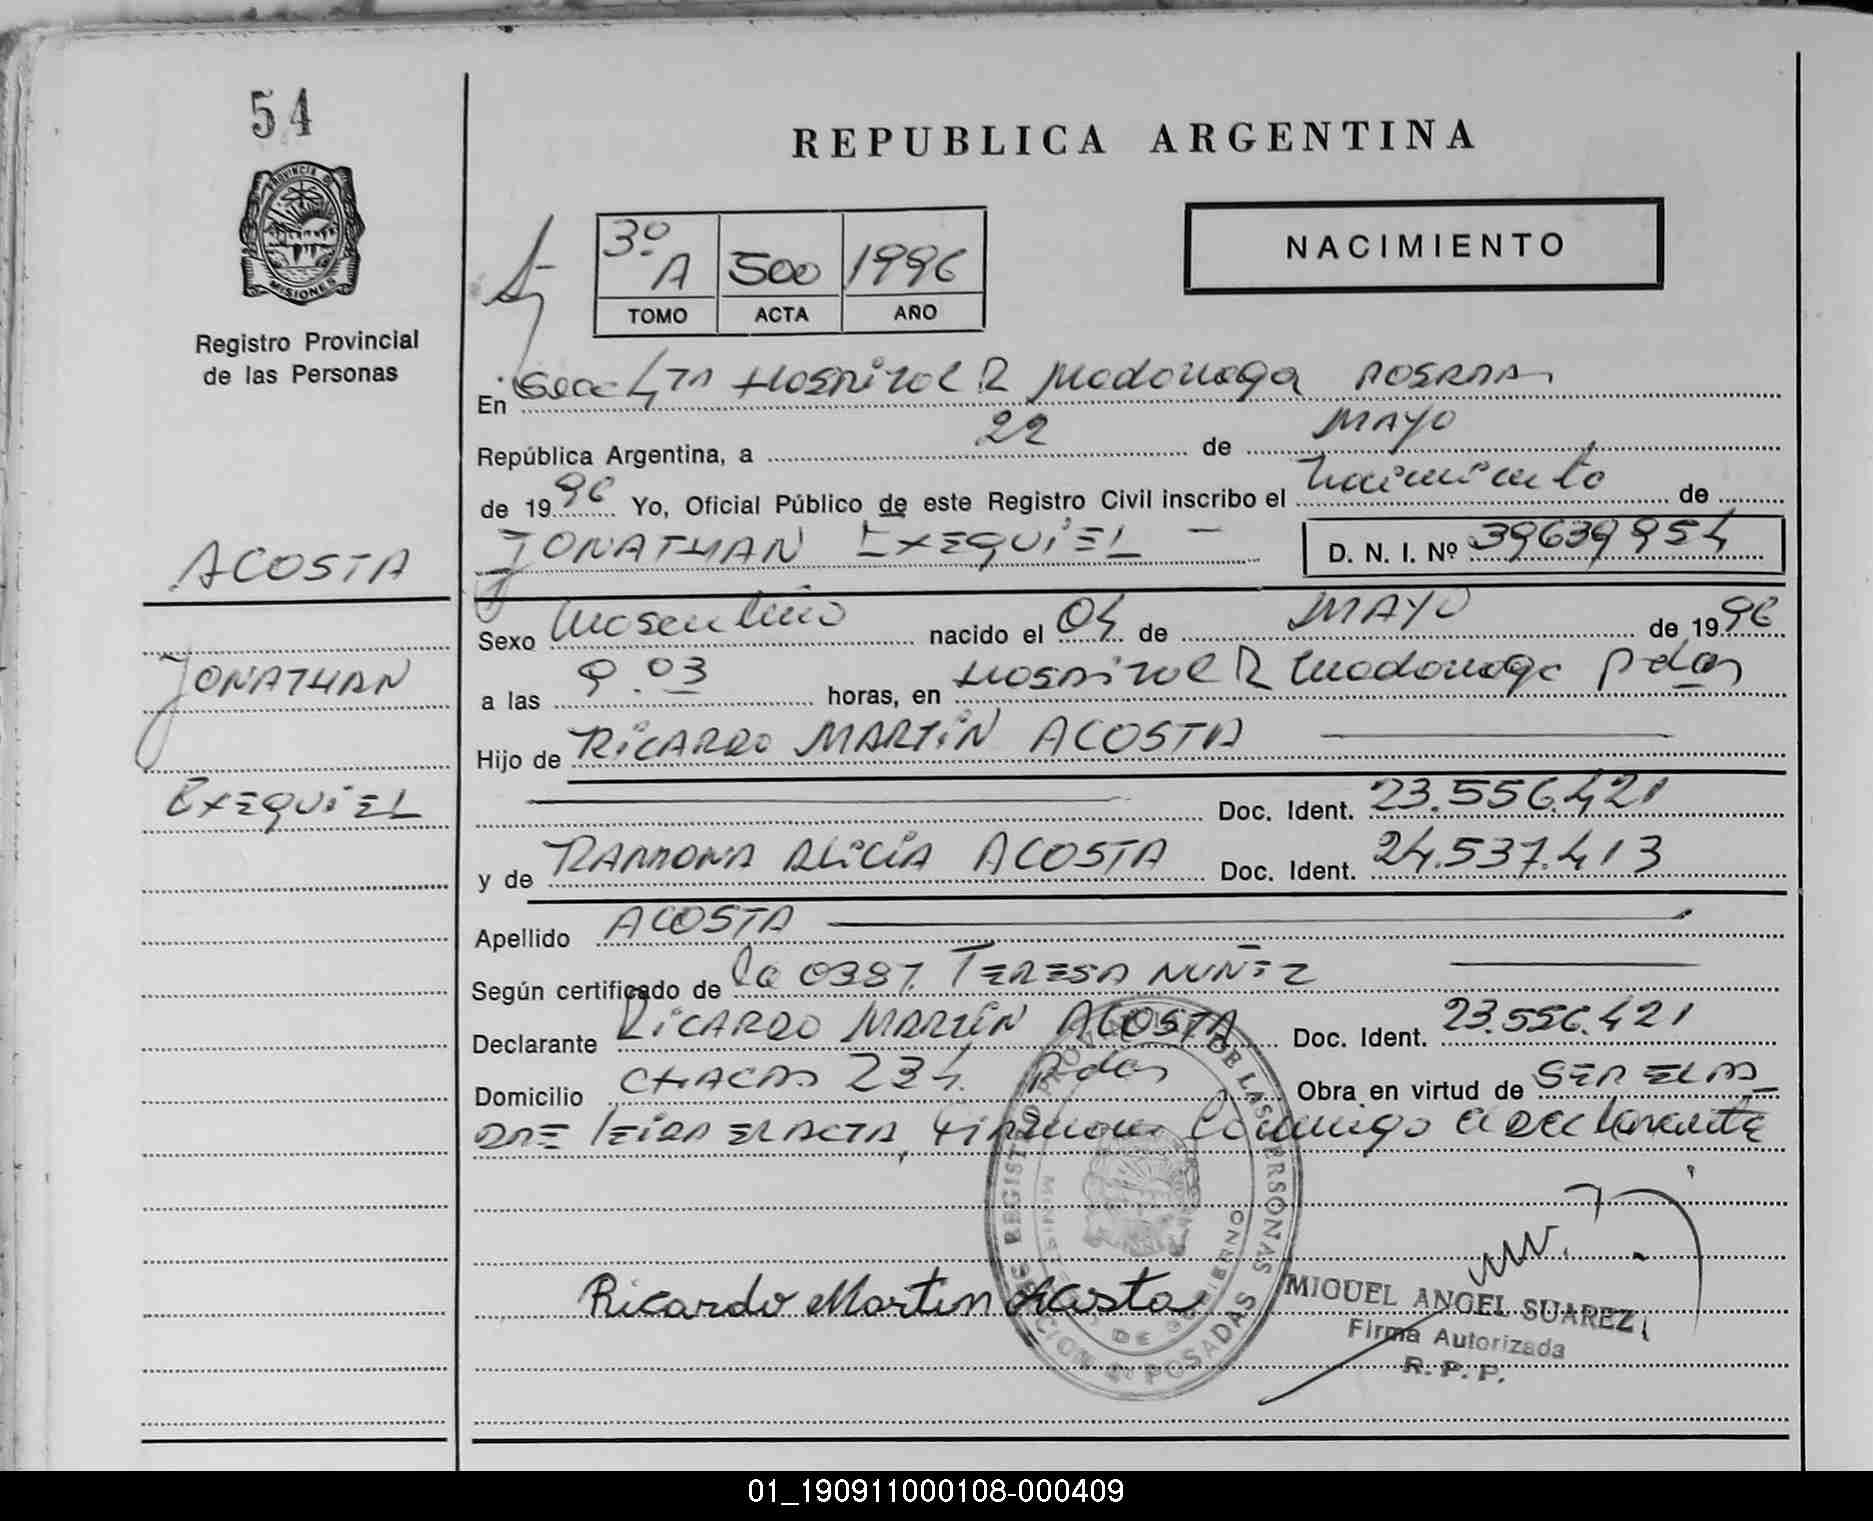 54
REPUBLICA ARGENTINA
PROVINCIA DE
MISIONES
Registro Provincial
de las Personas
NACIMIENTO
3º A 500 1996
TOMO ACTA AÑO
En Secc 4ta Hospital R Madariaga Posadas
República Argentina, a 22 de MAYO
de 1996 Yo, Oficial Público de este Registro Civil inscribo el Nacimiento de
JONATHAN EXEQUIEL - D. N. I. Nº 39639954
ACOSTA
Sexo Masculino nacido el 04 de MAYO de 1996
JONATHAN
a las 9.03 horas, en Hospital R Madariaga Pdas
Hijo de RICARDO MARTIN ACOSTA
EXEQUIEL
Doc. Ident. 23.556.421
y de RAMONA ALICIA ACOSTA Doc. Ident. 24.537.413
Apellido ACOSTA
Según certificado de la OBST. TERESA NUNEZ
Declarante RICARDO MARTIN ACOSTA Doc. Ident. 23.556.421
Domicilio CHACAS 234 Pdas Obra en virtud de SER EL PA
DRE leida EL ACTA, Firman Conmigo el declarante
REGISTRO PROVINCIAL DE LAS PERSONAS
MINISTERIO DE GOBIERNO
SECCION 4ª POSADAS
Ricardo Martin Acosta
MIGUEL ANGEL SUAREZ
Firma Autorizada
R. P. P.
01_190911000108-000409